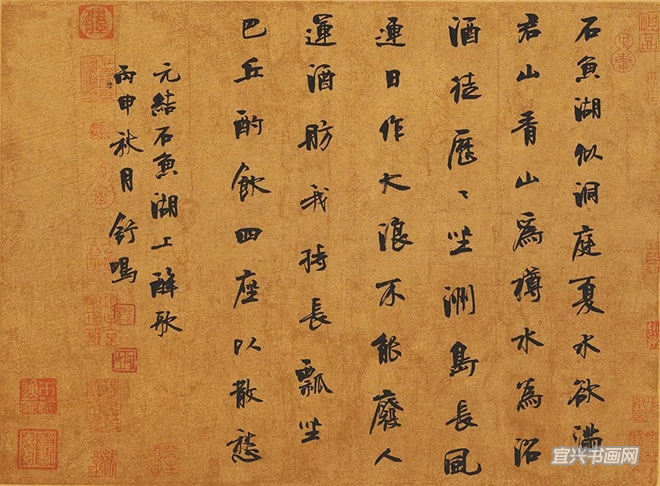 石魚湖似洞庭夏水欲滿
君山青山爲樽水為沼
酒徒歷〻坐洲島長風
連日作大浪不能廢人
運酒舫我持長瓢坐
巴丘酌飲四座以散愁
元結石魚湖上醉歌
丙申秋月舒鳴
宜兴书画网